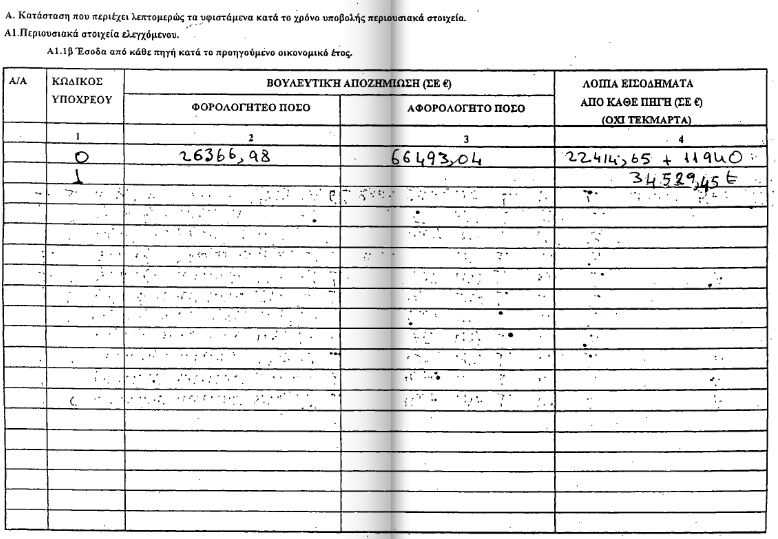 Α. Κατάσταση που περιέχει λεπτομερώς τα υφιστάμενα κατά το χρόνο υποβολής περιουσιακά στοιχεία.
Α1.Περιουσιακά στοιχεία ελεγχόμενου.
Α1.1β Έσοδα από κάθε πηγή κατά το προηγούμενο οικονομικό έτος.
Α/Α ΚΩΔΙΚΟΣ ΒΟΥΛΕΥΤΙΚΗ ΑΠΟΖΗΜΙΩΣΗ (ΣΕ €) ΛΟΙΠΑ ΕΙΣΟΔΗΜΑΤΑ
ΥΠΟΧΡΕΟΥ ΦΟΡΟΛΟΓΗΤΕΟ ΠΟΣΟ ΑΦΟΡΟΛΟΓΗΤΟ ΠΟΣΟ ΑΠΟ ΚΑΘΕ ΠΗΓΗ (ΣΕ €)
(ΟΧΙ ΤΕΚΜΑΡΤΑ)
1 2 3 4
0 26366,98 66493,04 22414,65 + 11940
1 34529,45 €